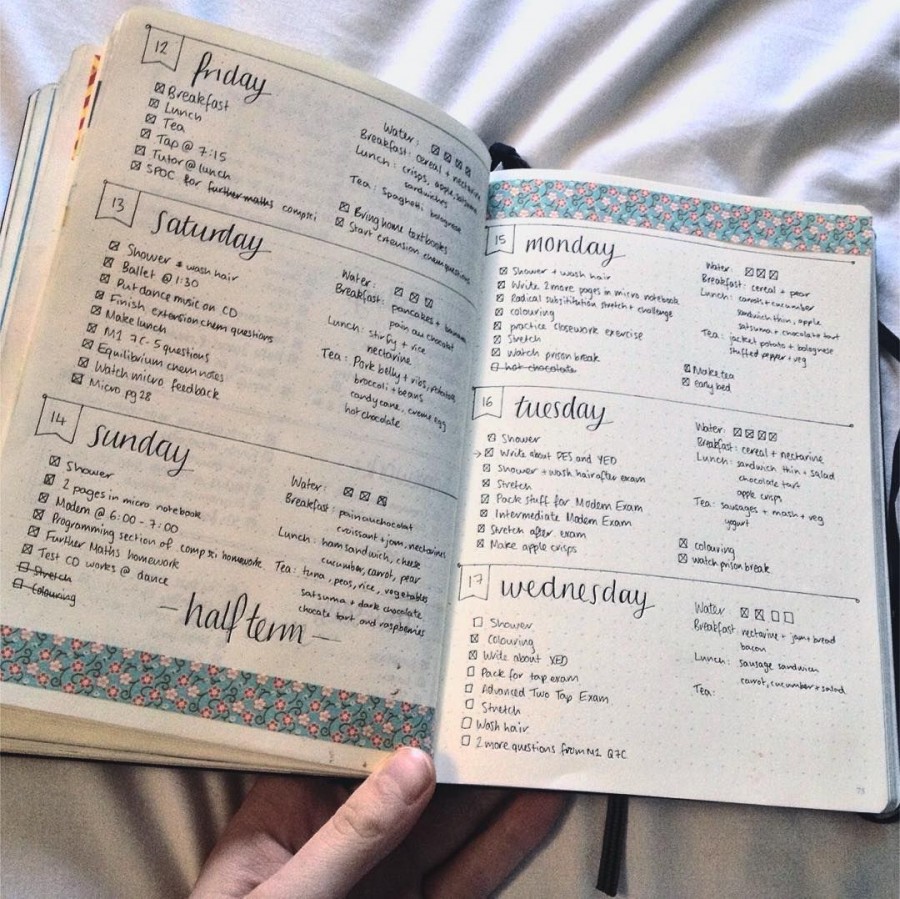 12
friday
Breakfast
Lunch
Tea
Tap @ 7:15
Tutor @ lunch
SPOC for further maths compsci
Water:
Breakfast: cereal + nectarine
Lunch: crisps, apple, satsuma
sandwiches
Tea: spaghetti bolognese
Bring home textbooks
Start extension chem questions
13
saturday
Shower + wash hair
Ballet @ 1:30
Put dance music on CD
Finish extension chem questions
Make lunch
M1 7C - 5 questions
Equilibrium chem notes
Watch micro feedback
Micro pg 28
Water:
Breakfast: pancakes +
pain au chocolat
Lunch: stirfry + rice
nectarine
Tea: Pork belly + ribs, potatoes
broccoli + beans
candy cane, creme egg
hot chocolate
14
sunday
Shower
2 pages in micro notebook
Modern @ 6:00 - 7:00
Programming section of compsci homework
Further Maths homework
Test CD works @ dance
Stretch
Colouring
Water:
Breakfast: pain au chocolat
croissant + jam, nectarines
Lunch: ham sandwich, cheese
cucumber, carrot, pear
Tea: tuna, peas, rice, vegetables
satsuma + dark chocolate
chocate tart and raspberries
- half term -
15
monday
Shower + wash hair
Write 2 more pages in micro notebook
Radical substitution stretch + challenge
colouring
practice closework exercise
Stretch
Watch prison break
hot chocolate
Water:
Breakfast: cereal + pear
Lunch: carrots + cucumber
sandwich thin, apple
satsuma + chocolate tart
Tea: jacket potato + bolognese
stuffed pepper + veg
Make tea
early bed
16
tuesday
Shower
→ Write about PES and YED
Shower + wash hair after exam
Stretch
Pack stuff for Modern Exam
Intermediate Modern Exam
Stretch after exam
Make apple crisps
Water:
Breakfast: cereal + nectarine
Lunch: sandwich thin + salad
chocolate tart
apple crisps
Tea: sausages + mash + veg
yogurt
colouring
watch prison break
17
wednesday
Shower
Colouring
Write about XED
Pack for tap exam
Advanced Two Tap Exam
Stretch
Wash hair
2 more questions from M1 Q7C
Water
Breakfast: nectarine + jam + bread
bacon
Lunch: sausage sandwich
carrot, cucumber + salad
Tea: